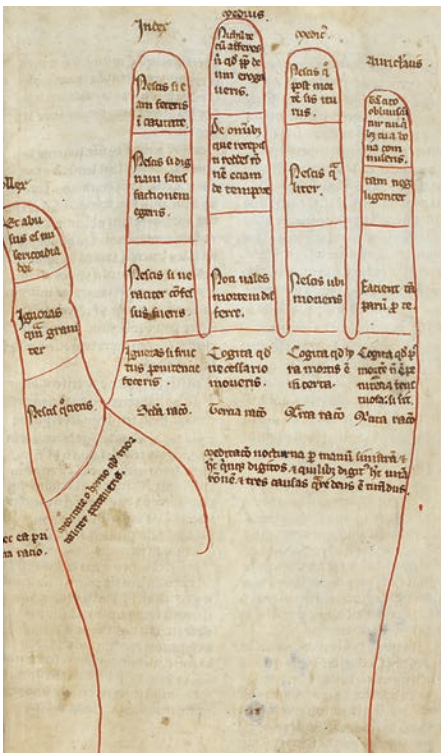 Index
Medius
Medicꝰ
Auriclaris
ollex
Nescis si e
am feceris
i caritate.
Nescis si dig
nam satis
factionem
egeris.
Nescis si ue
raciter cōfes
sus fueris
Ignoras si fruc
tus penitencie
feceris
Scđa racō.
Nichil te
cū afferes
nͥ qđ ꝓp de
um eroga
ueris.
De omībꝫ
que recepis
ti reddes rō
nē eciam
de tempore
Non uales
mortem dif
ferre.
Cogita qđ
necessario
morieris.
Tercia racō
Nescis qͥ
post mor
tē sis itu
rus.
Nescis qͣ
liter.
Nescis ubi
morieris
Cogita qđ h
ra mortis ē
īcerta.
Qͣrta racō
obliuiscū
tur tui
bꝫ tua bo
na com
miseris.
tam neg
ligenter
Facient
parū ꝓ te.
Cogita qđ pͥ
mortē
nitēcia
tuosa. si sit.
Qͥnta racō
Et abu
sus es mi
sericordia
dei
Ignoras
qͣm graui
ter
Nescis qͦciens
meditare o homo qđ mor
taliter peccaueris.
ec est pri
ma racio.
Meditacō nocturna ꝑ manū sinistrā ⁊
hꝫ qͥnqꝫ digitos. ⁊ quilibꝫ digitꝰ hꝫ unā
rōnē ⁊ tres causas qͣre deus ē timēdus.